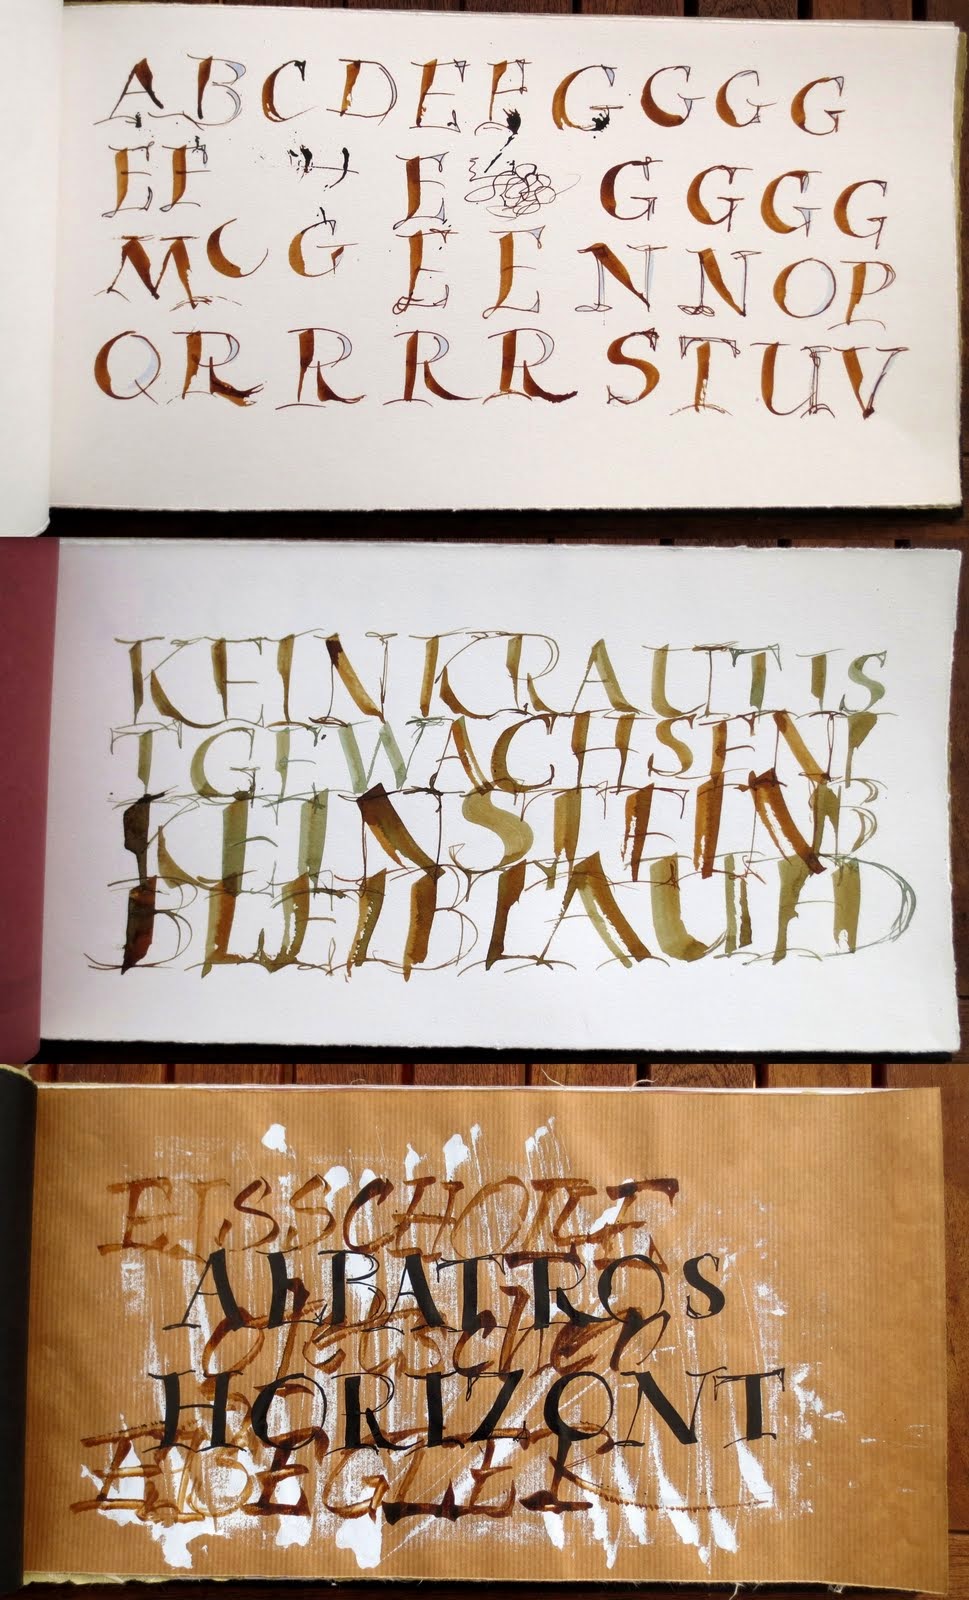 A B C D E F G G G G
E F E G G G G
M C G E E N N O P
Q R R R R S T U V
KEIN KRAUT IS
T GEWACHSEN
KEIN STEIN B
BLEIBT AUF D
EISSCHOLLE
ALBATROS
Gletscher
HORIZONT